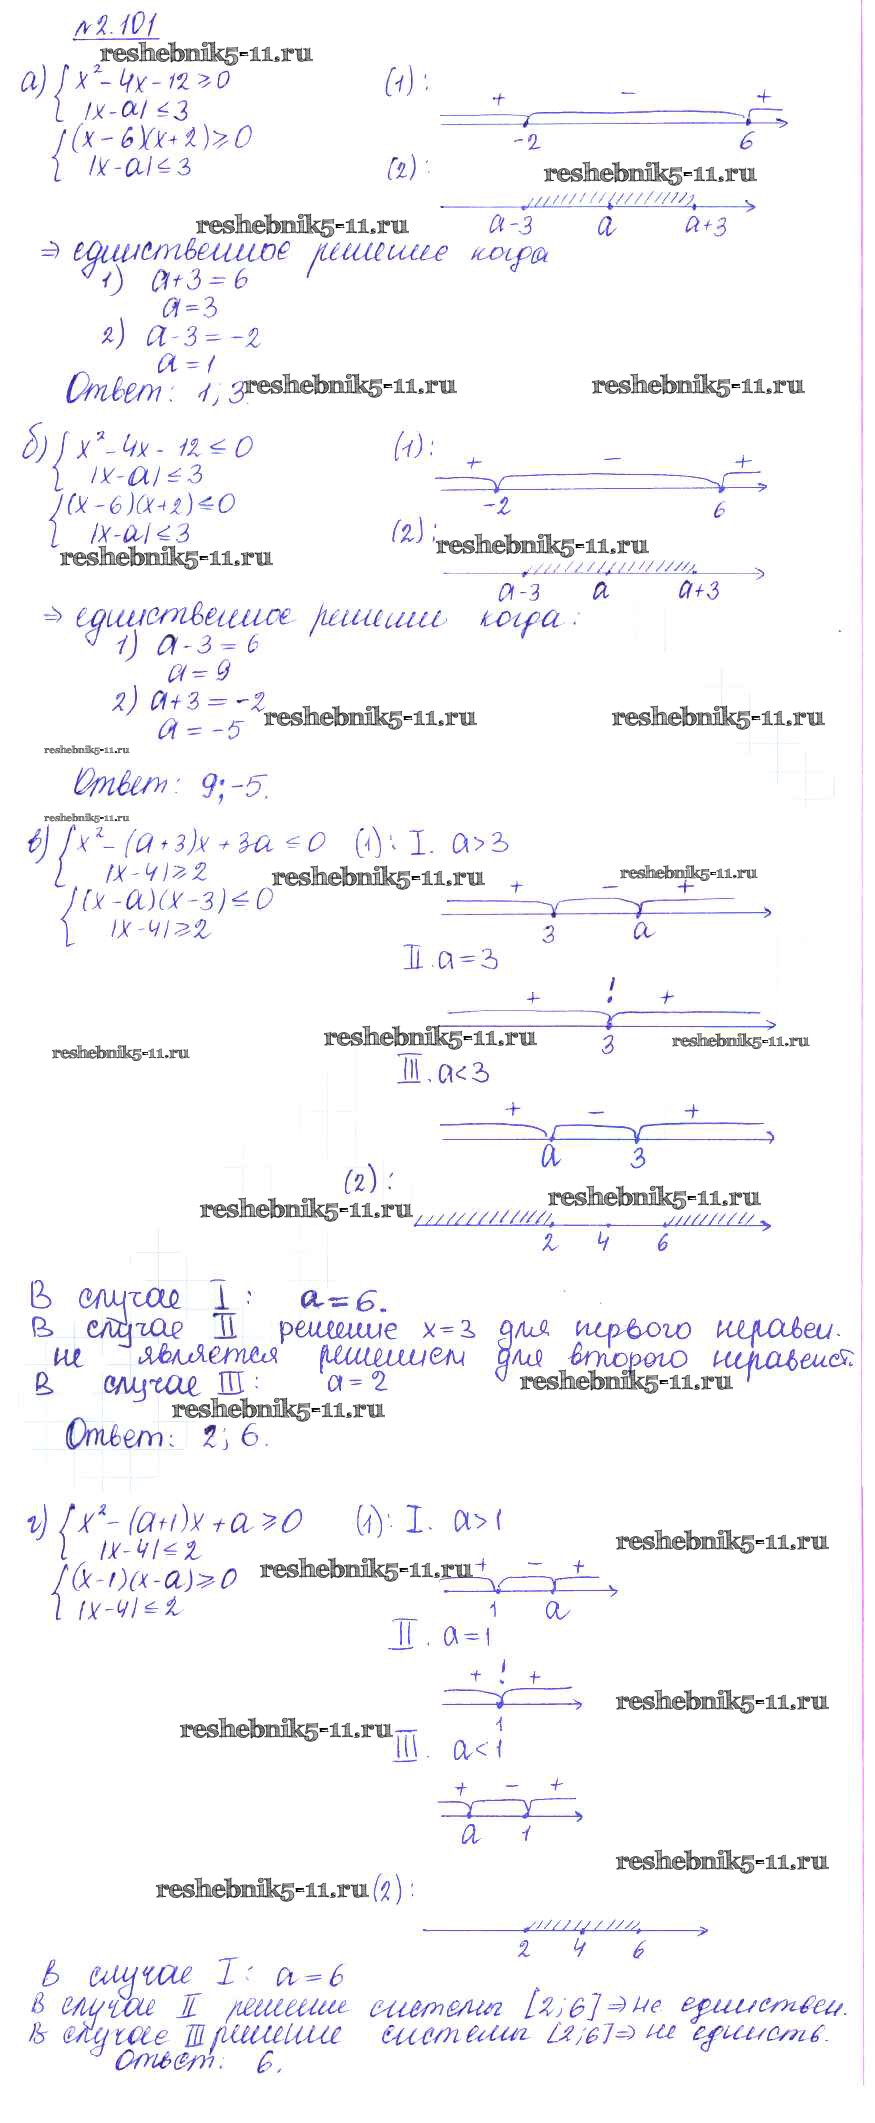 №2.101
reshebnik5-11.ru
а) { x² - 4x - 12 ≥ 0 (1):
|x-a| ≤ 3
+ - +
-2 6
{ (x-6)(x+2) ≥ 0
|x-a| ≤ 3 (2):
reshebnik5-11.ru
a-3 a a+3
reshebnik5-11.ru
⇒ единственное решение когда
1) a+3=6
a=3
2) a-3=-2
a=1
Ответ: 1; 3.
reshebnik5-11.ru reshebnik5-11.ru
б) { x² - 4x - 12 ≤ 0 (1):
|x-a| ≤ 3
+ - +
-2 6
{ (x-6)(x+2) ≤ 0
|x-a| ≤ 3 (2):
reshebnik5-11.ru
reshebnik5-11.ru
a-3 a a+3
⇒ единственное решении когда:
1) a-3=6
a=9
2) a+3=-2
a=-5
reshebnik5-11.ru reshebnik5-11.ru
reshebnik5-11.ru
Ответ: 9; -5.
reshebnik5-11.ru
в) { x² - (a+3)x + 3a ≤ 0 (1): I. a>3
|x-4| ≥ 2
reshebnik5-11.ru reshebnik5-11.ru
{ (x-a)(x-3) ≤ 0
|x-4| ≥ 2
+ - +
3 a
II. a=3
! + +
3
reshebnik5-11.ru reshebnik5-11.ru
reshebnik5-11.ru
III. a<3
+ - +
a 3
(2):
reshebnik5-11.ru reshebnik5-11.ru
2 4 6
В случае I: a=6.
В случае II решение x=3 для первого неравен.
не является решением для второго неравенст.
В случае III: a=2
reshebnik5-11.ru
reshebnik5-11.ru
Ответ: 2; 6.
г) { x² - (a+1)x + a ≥ 0 (1): I. a>1
|x-4| ≤ 2
reshebnik5-11.ru
reshebnik5-11.ru
{ (x-1)(x-a) ≥ 0
|x-4| ≤ 2
+ - +
1 a
II. a=1
+ ! +
1
reshebnik5-11.ru
reshebnik5-11.ru
III. a<1
+ - +
a 1
reshebnik5-11.ru
reshebnik5-11.ru (2):
2 4 6
В случае I: a=6
В случае II решение системы [2;6] ⇒ не единствен.
В случае III решение системы [2;6] ⇒ не единств.
Ответ: 6.